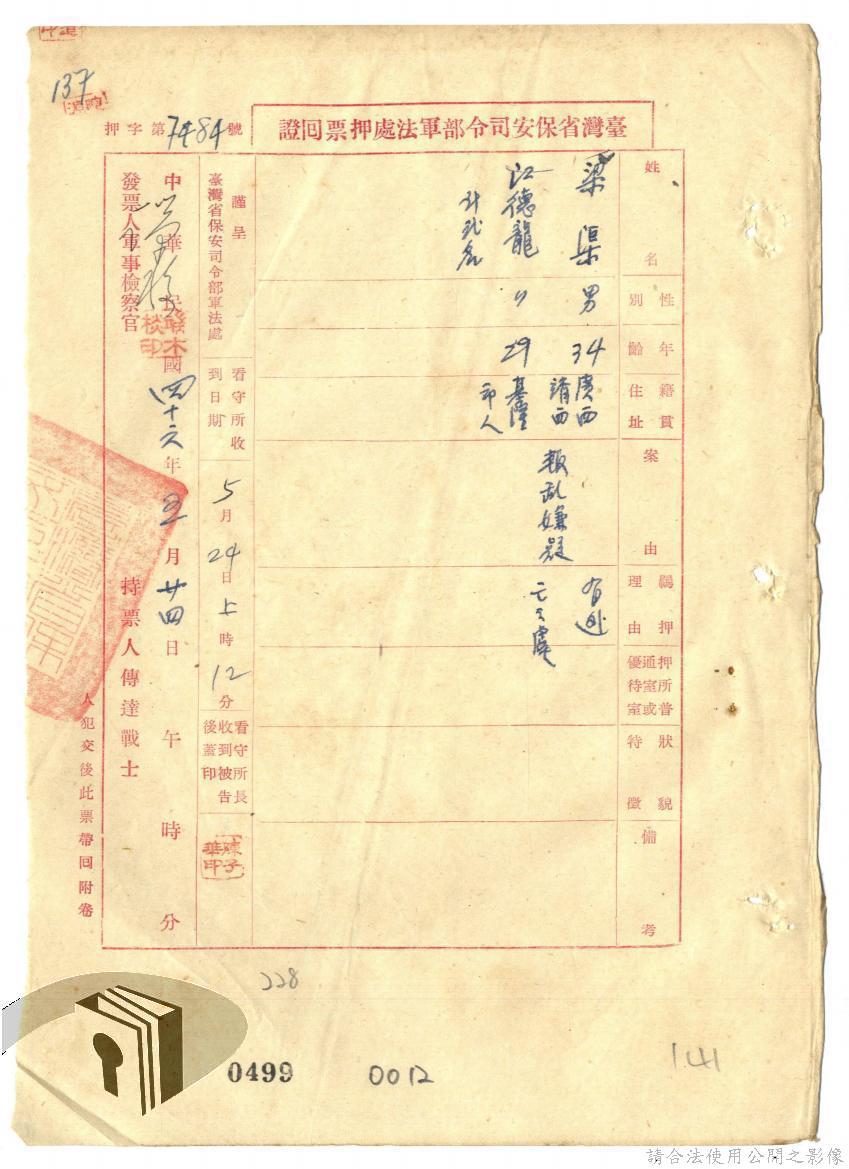 137
押字第7484號
臺灣省保安司令部軍法處押票回證
姓名
梁渠
江德龍
計貳名
性別
男
〃
年齡
34
29
籍貫住址
廣西
靖西
基隆
市人
案由
叛亂嫌疑
羈押理由
有逃
亡之虞
押所普通室或優待室
狀貌特徵
備考
謹呈
臺灣省保安司令部軍法處
看守所收到日期
5月24日上時12分
看守所長收到被告後蓋印
陳子華印
中華民國四十六年五月廿四日午時分
發票人軍事檢察官
持票人傳達戰士
人犯交後此票帶回附卷
228
0499
0012
141
請合法使用公開之影像